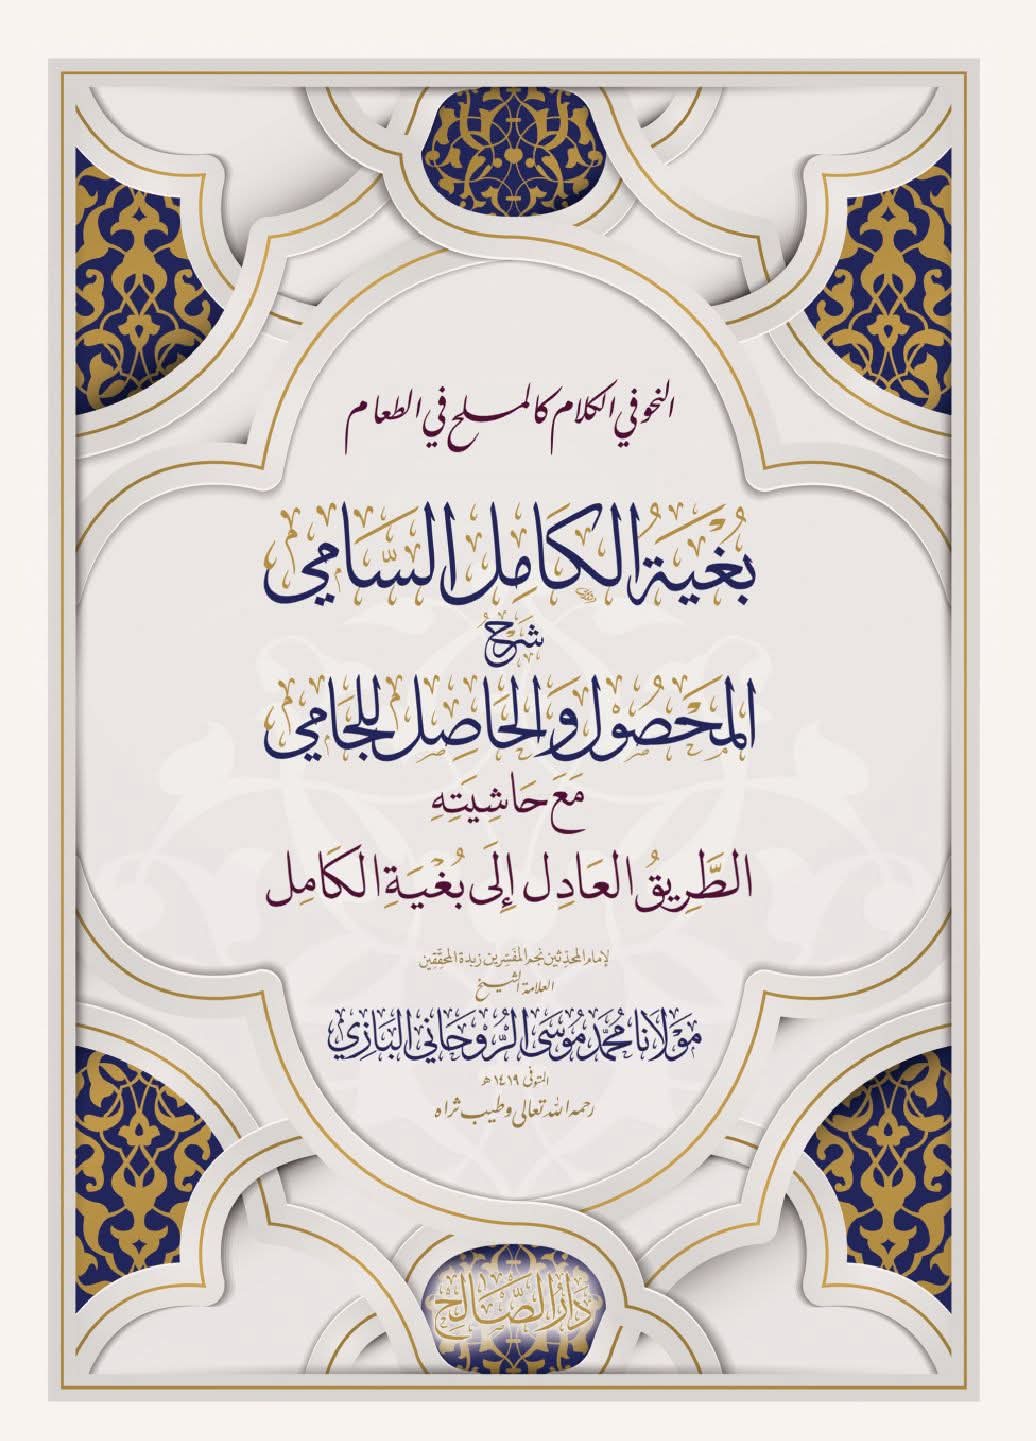 النحو في الكلام كالملح في الطعام
بُغْيَةُ الكَامِل السَّامِي
شَرْحُ
المَحْصُول وَالحَاصِل لِلجَامِي
مَعَ حَاشِيَتِهِ
الطَّرِيقُ العَادِل إِلَى بُغْيَةِ الكَامِل
لإمام المحدِّثين نجم المفسِّرين زبدة المحقِّقين
العلامة الشيخ
مَوْلَانَا مُحَمَّد مُوْسَى الرُّوْحَانِي البَازِي
المتوفى ١٤١٩ هـ
رحمه الله تعالى وطيب ثراه
دَارُ الصَّالِحِ